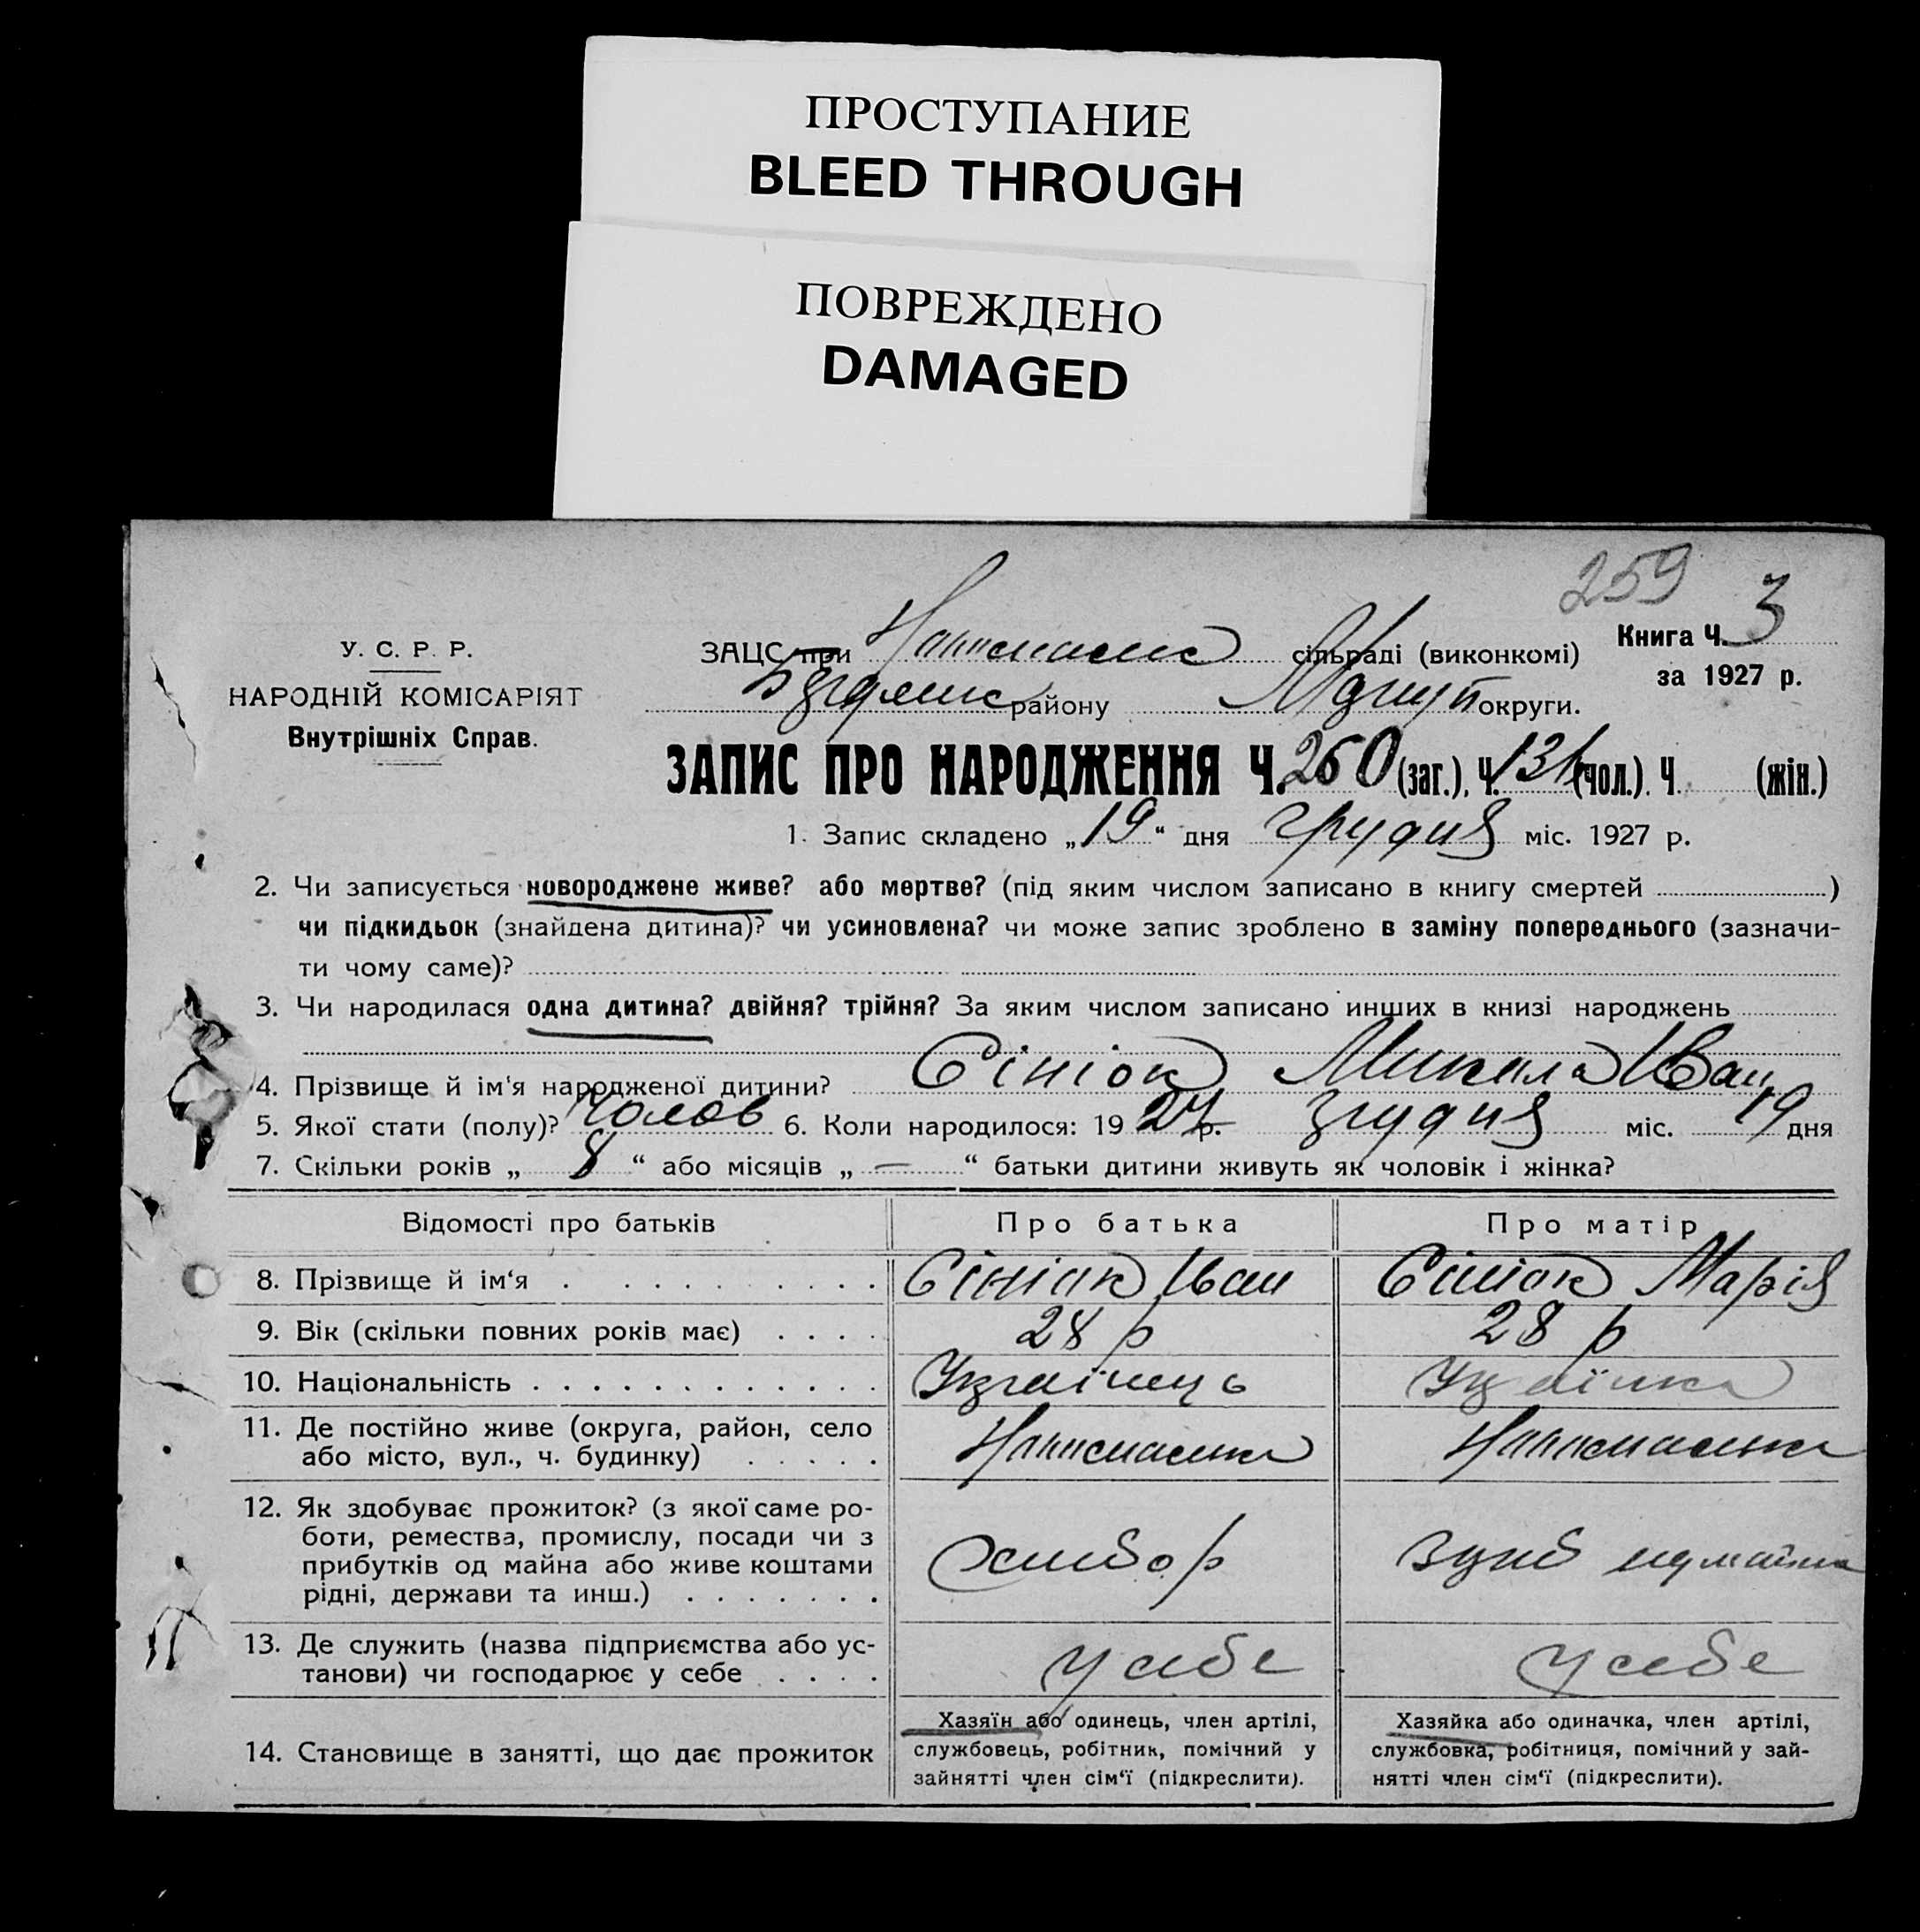 ПРОСТУПАНИЕ
BLEED THROUGH
ПОВРЕЖДЕНО
DAMAGED
259
У. С. Р. Р.
НАРОДНІЙ КОМІСАРІЯТ
Внутрішніх Справ.
ЗАЦС при сільраді (виконкомі)
Книга Ч. 3
за 1927 р.
району округи.
ЗАПИС ПРО НАРОДЖЕННЯ Ч. 260 (заг.), Ч. 131 (чол.). Ч. (жін.)
1. Запис складено „19“ дня грудня міс. 1927 р.
2. Чи записується новороджене живе? або мертве? (під яким числом записано в книгу смертей )
чи підкидьок (знайдена дитина)? чи усиновлена? чи може запис зроблено в заміну попереднього (зазначи-
ти чому саме)?
3. Чи народилася одна дитина? двійня? трійня? За яким числом записано инших в книзі народжень
4. Прізвище й ім'я народженої дитини? Сініок Микола Іван
5. Якої стати (полу)? Чолов 6. Коли народилося: 1927 р. грудня міс. 19 дня
7. Скільки років „ 8 “ або місяців „ — “ батьки дитини живуть як чоловік і жінка?
Відомості про батьків Про батька Про матір
8. Прізвище й ім‘я Сініок Іван Сініок Марія
9. Вік (скільки повних років має) 28 р 28 р
10. Національність Українець Українка
11. Де постійно живе (округа, район, село
або місто, вул., ч. будинку)
12. Як здобуває прожиток? (з якої саме ро-
боти, ремества, промислу, посади чи з
прибутків од майна або живе коштами
рідні, держави та инш.) хлібор
13. Де служить (назва підприємства або ус-
танови) чи господарює у себе у себе у себе
14. Становище в занятті, що дає прожиток
Хазяїн або одинець, член артілі,
службовець, робітник, помічний у
зайнятті член сім‘ї (підкреслити).
Хазяйка або одиначка, член артілі,
службовка, робітниця, помічний у зай-
нятті член сім‘ї (підкреслити).